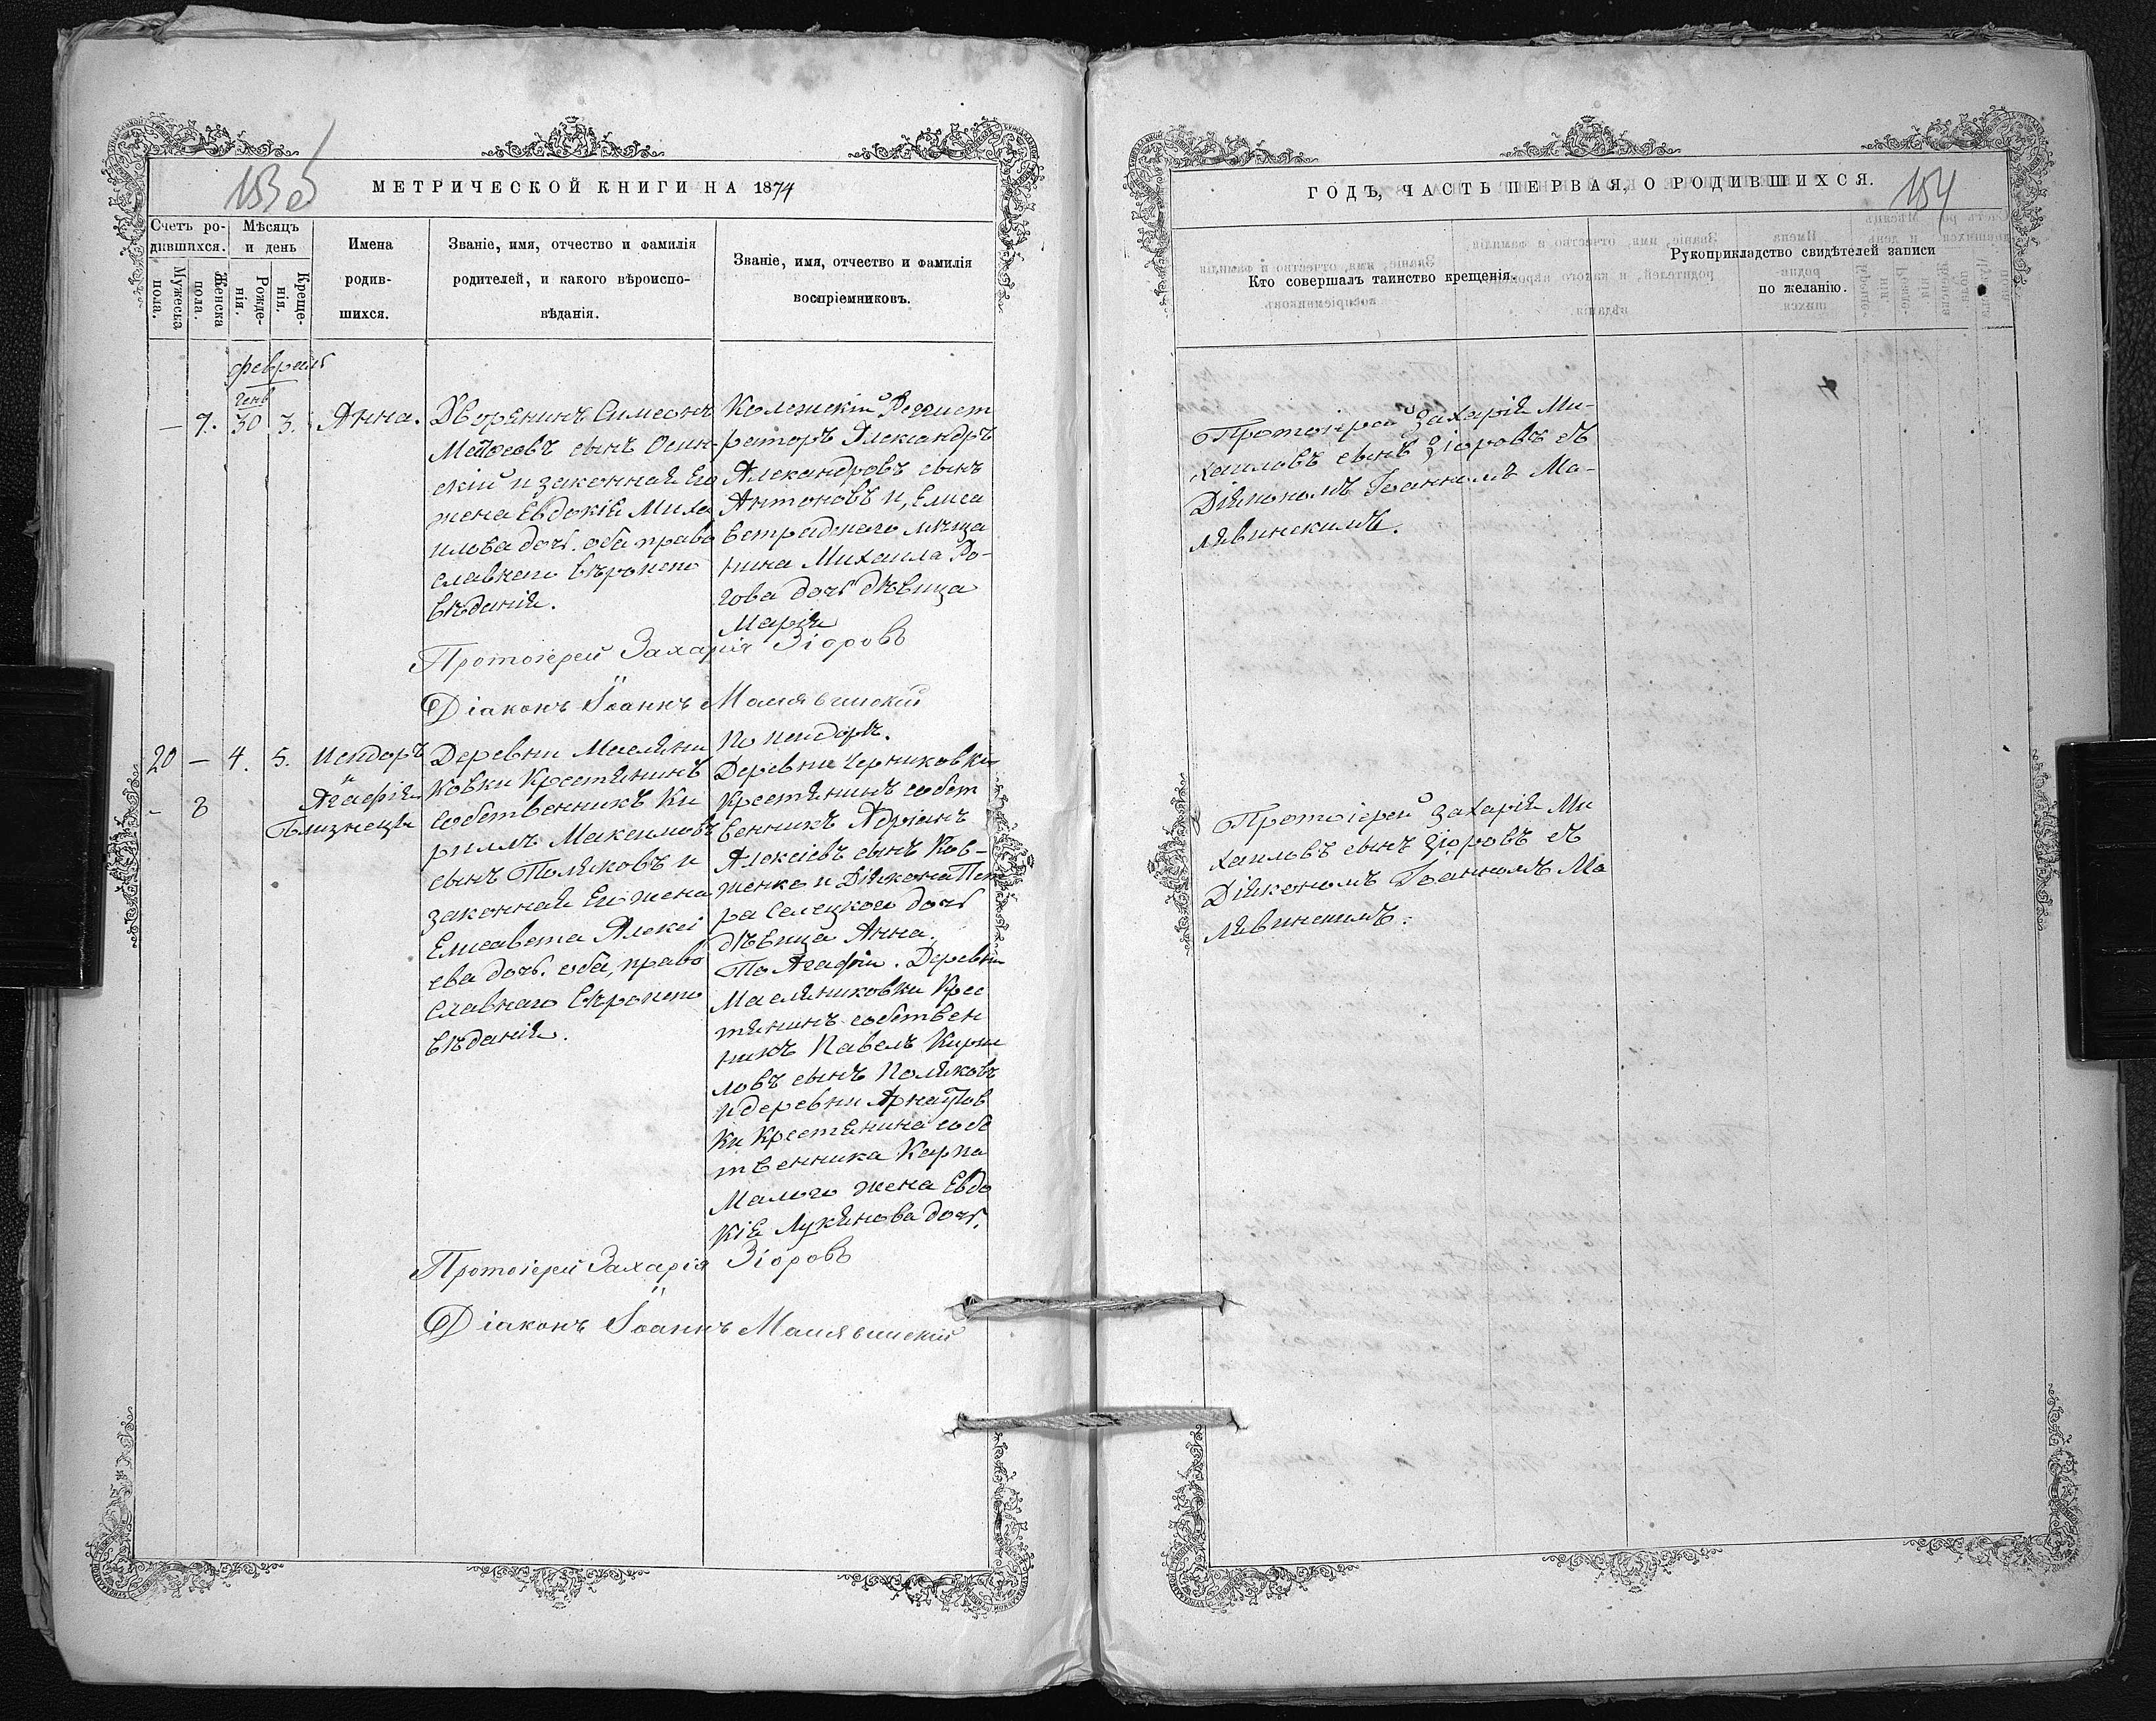 153 об
МЕТРИЧЕСКОЙ КНИГИ НА 1874
Счетъ ро-
дившихся.
Мужеска
пола.
Женска
пола.
Мѣсяцъ
и день
Рожде-
нія.
Креще-
нія.
Имена
родив-
шихся.
Званіе, имя, отчество и фамилія
родителей, и какого вѣроиспо-
вѣданія.
Званіе, имя, отчество и фамилія
воспріемниковъ.
февраль
генв
— 7. 30 3. Анна.
Дворянинъ Симеонъ
сынъ Осин-
скій и законная Его
жена Евдокія Миха
илова дочь. оба право
славнаго вѣроиспо
вѣданія.
Колежскій Регист
раторъ Александръ
Александровъ сынъ
Антоновъ и, Елиса
ветрадскаго мѣща
нина Михаила Ро-
гова дочь дѣвица
Марія
Протоіерей Захарія Зіоровъ
Діаконъ Іоаннъ Малявинскій
20 — 4. 5. Исидоръ
и
- 8 Агафія
Близнецы
Деревни Масляни
ковки Крестянинъ
собственникъ Ки
риллъ Максимовъ
сынъ Поляковъ и
законная Его жена
Елисавета Алексі
ева дочь. оба, право
славнаго вѣроиспо
вѣданія.
По Исидорѣ.
Деревни Черниковки
Крестянинъ собст
венникъ Адріанъ
Алексіевъ сынъ Ков-
женко и Діякона Пет
ра Селецкого дочь
дѣвица Анна.
По Агафіи. Деревни
Масляниковки Крес
тянинъ собствен
никъ Павелъ Кирил
ловъ сынъ Поляковъ
и деревни Арнаутов
ки Крестянина собс
твенника Карпа
Малого жена Евдо
кія Лукянова дочь.
Протоіерей Захарія Зіоровъ
Діаконъ Іоаннъ Малявинскій
ГОДЪ, ЧАСТЬ ПЕРВАЯ, О РОДИВШИХСЯ.
154
Кто совершалъ таинство крещенія.
Рукоприкладство свидѣтелей записи
по желанію.
Протоіерей Захарія Ми-
хаиловъ сынъ Зіоровъ съ
Діякономъ Іоанномъ Ма-
лявинскимъ.
Протоіерей Захарія Ми
хаиловъ сынъ Зіоровъ съ
Діякономъ Іоанномъ Ма
лявинскимъ.